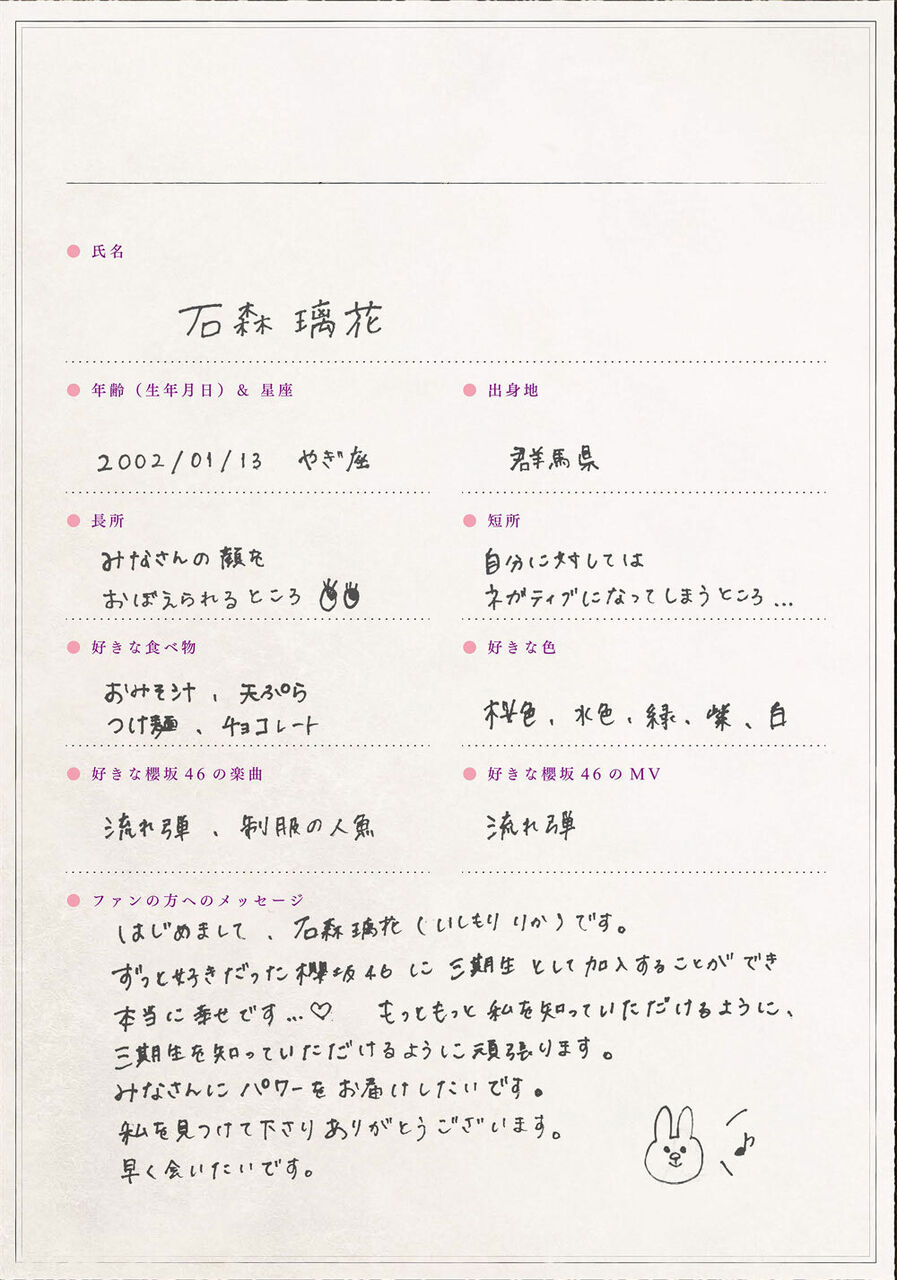 氏名
石森璃花
年齢（生年月日）& 星座
2002/01/13 やぎ座
出身地
群馬県
長所
みなさんの顔を
おぼえられるところ
短所
自分に対しては
ネガティブになってしまうところ...
好きな食べ物
おみそ汁、天ぷら
つけ麺、チョコレート
好きな色
桜色、水色、緑、紫、白
好きな櫻坂46の楽曲
流れ弾、制服の人魚
好きな櫻坂46のMV
流れ弾
ファンの方へのメッセージ
はじめまして、石森璃花(いしもり りか)です。
ずっと好きだった櫻坂46に三期生として加入することができ
本当に幸せです...♡ もっともっと私を知っていただけるように、
三期生を知っていただけるように頑張ります。
みなさんにパワーをお届けしたいです。
私を見つけて下さりありがとうございます。
早く会いたいです。